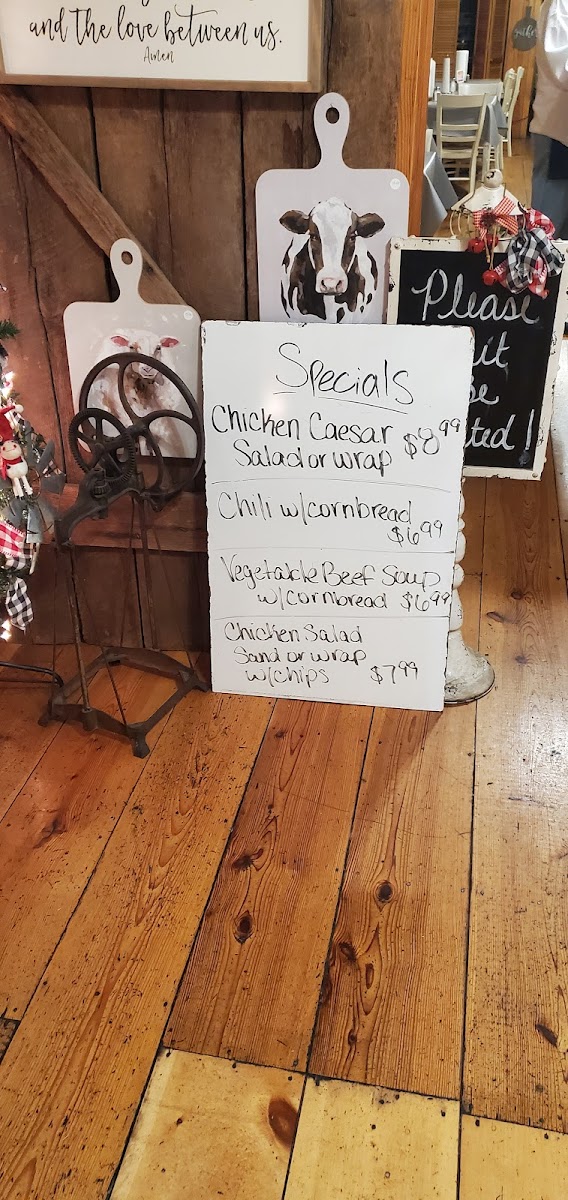 and the love between us.
Amen
gather
Please
Specials
Chicken Caesar
Salad or wrap $8.99
Chili w/cornbread
$6.99
Vegetable Beef Soup
w/cornbread $6.99
Chicken Salad
Sand or wrap
w/chips $7.99